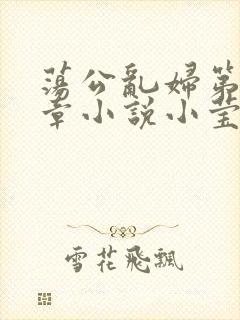 蕩公亂婦第
章小說小瑩
雪花飛飄